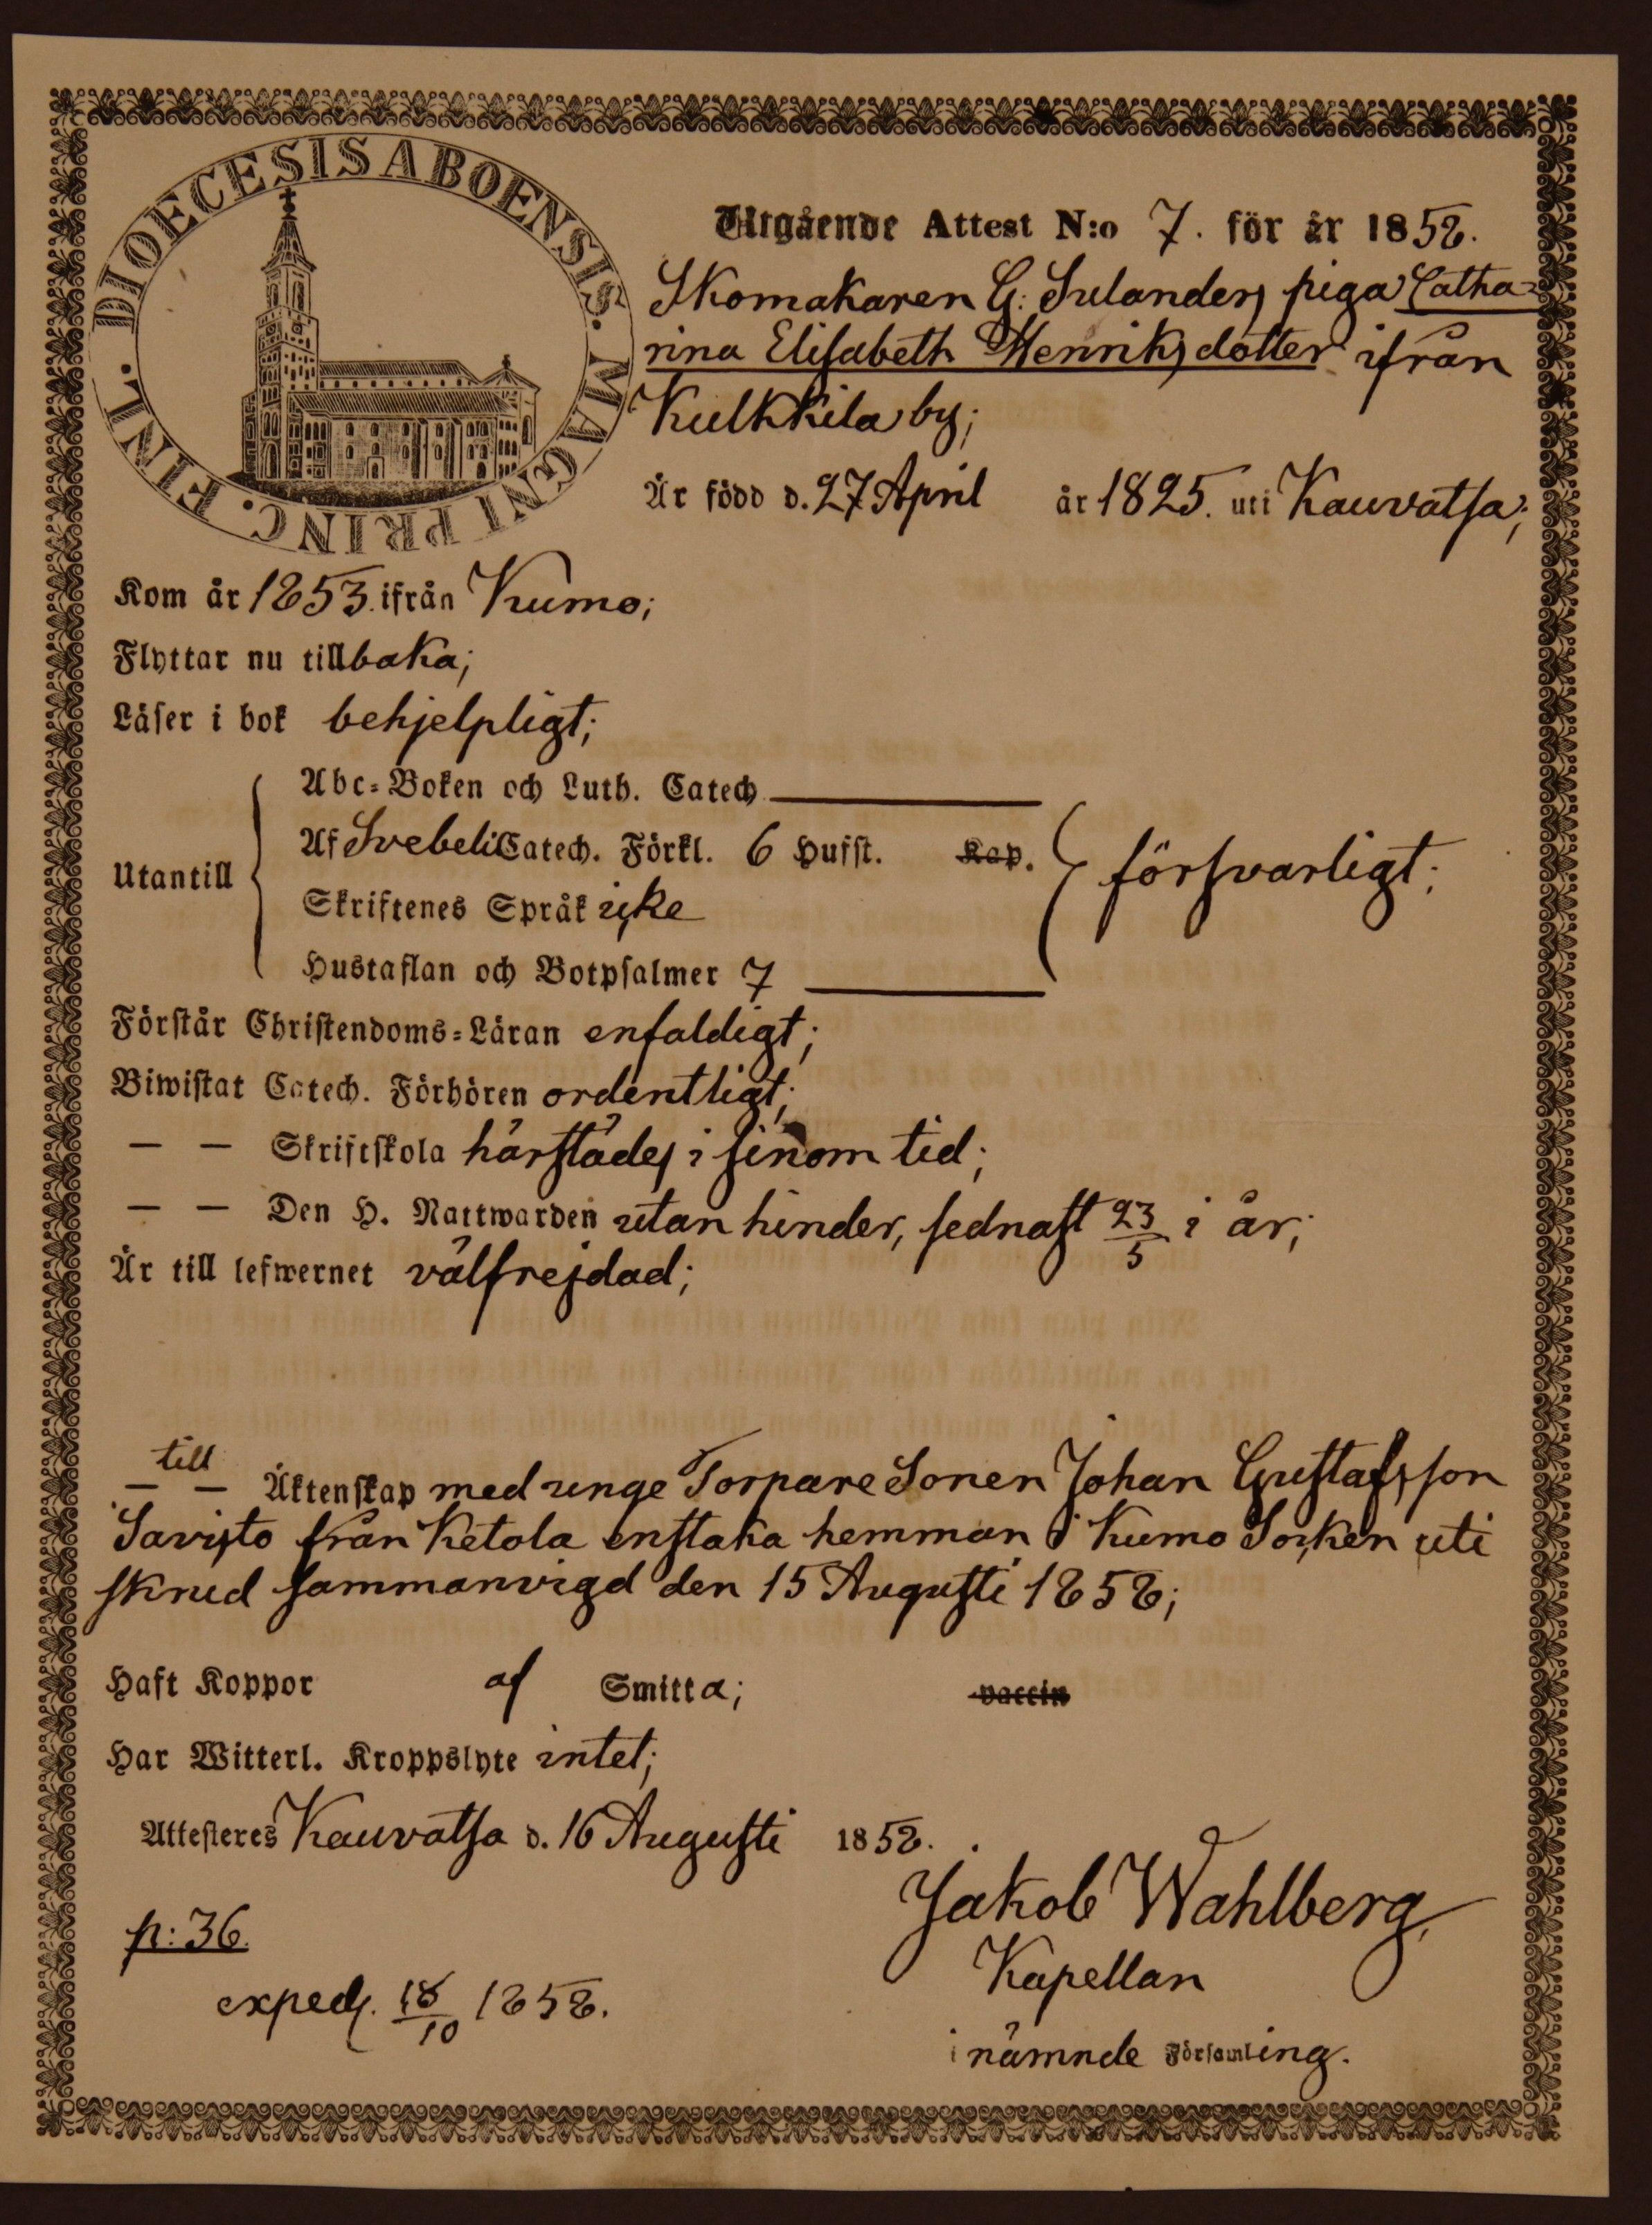 DIOECESIS ABOENSIS. MAGNI PRINC. FINL.
Utgående Attest N:o 7. för år 1858.
Skomakaren G: Sulanders piga Catha-
rina Elisabeth Henriksdotter ifrån
Kulkkila by;
Är född d. 27 April år 1825. uti Kauvatsa;
Kom år 1853. ifrån Kumo;
Flyttar nu tillbaka;
Läser i bok behjelpligt;
Abc-Boken och Luth. Catech
Utantill
Af Svebelii Catech. Förkl. 6 Hufst. Kap.
försvarligt;
Skriftenes Språk icke
Hustaflan och Botpsalmer 7
Förstår Christendoms-Läran enfaldigt;
Biwistat Catech. Förhören ordentligt;
— — Skriftskola härstädes i sinom tid;
— — Den H. Nattwarden utan hinder, sednast 23/5 i år;
Är till lefwernet välfrejdad;
till
— — Äktenskap med unge Torpare Sonen Johan Gustafsson
Savisto från Ketola enstaka hemman i Kumo Socken uti
skrud sammanvigd den 15 Augusti 1858;
Haft Koppor af Smitta; vaccin
Har Witterl. Kroppslyte intet;
Attesteres Kauvatsa d. 16 Augusti 1858.
Jakob Wahlberg,
p: 36.
Kapellan
exped. 18/10 1858.
i nämnde Församling.